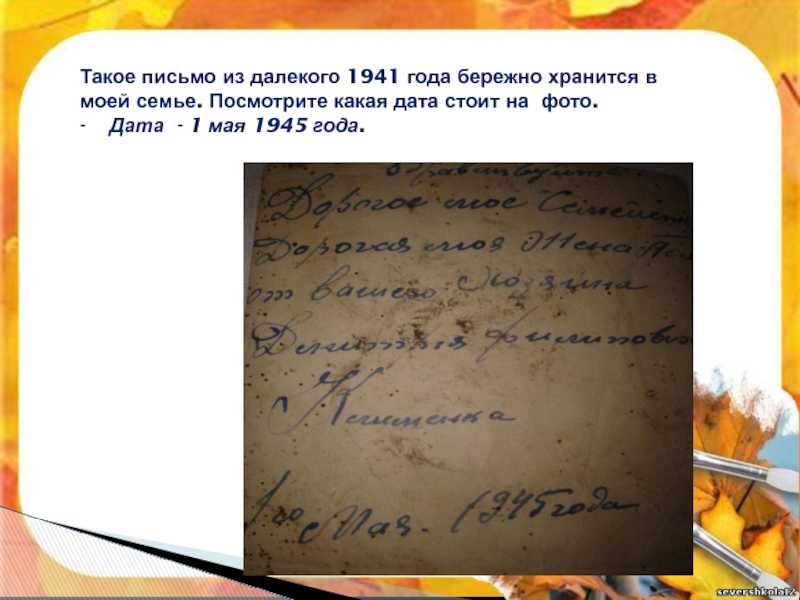 Такое письмо из далекого 1941 года бережно хранится в
моей семье. Посмотрите какая дата стоит на фото.
- Дата - 1 мая 1945 года.
Здравствуйте
Дорогое мое Семейст
Дорогая моя Жена
от вашего Хозяина
Дмитрия Филипович
Клименка
1го Мая. 1945 года
severshkola12